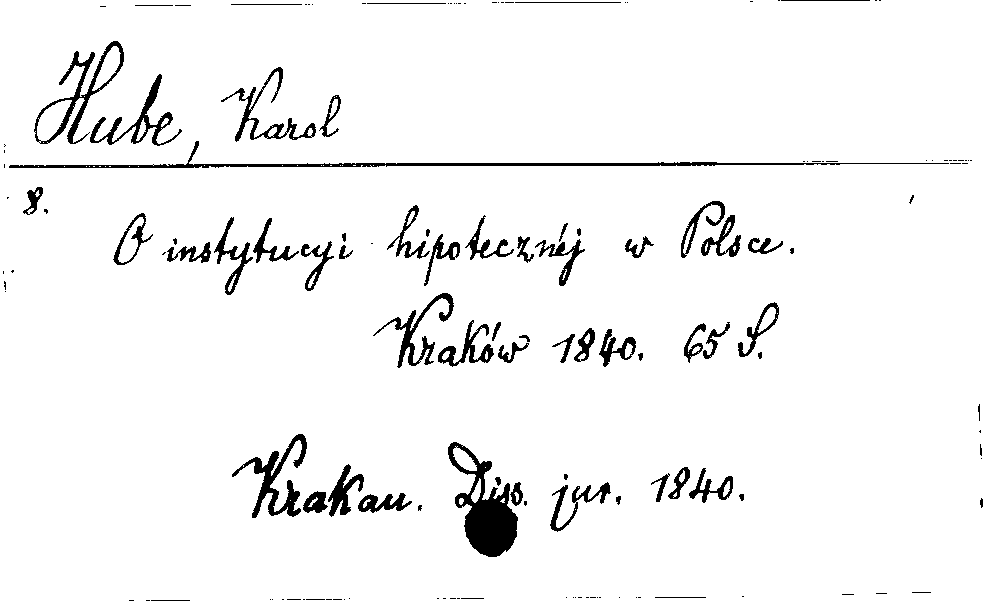 Hube, Karol
8.
O instytucyi hipotecznéj w Polsce.
Kraków 1840. 65 S.
Krakau. Diss. jur. 1840.